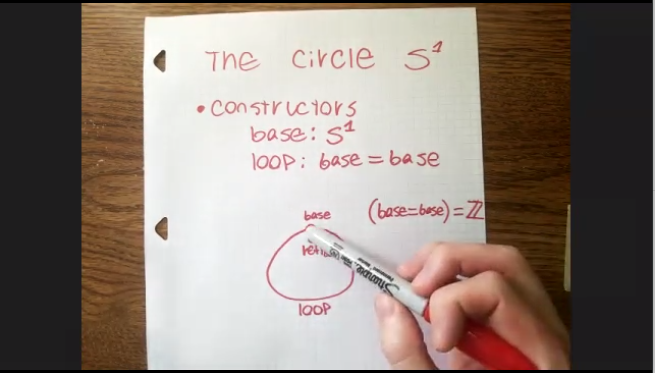 The Circle S¹
• Constructors
base: S¹
loop: base = base
base
(base=base)=ℤ
loop
Sharpie